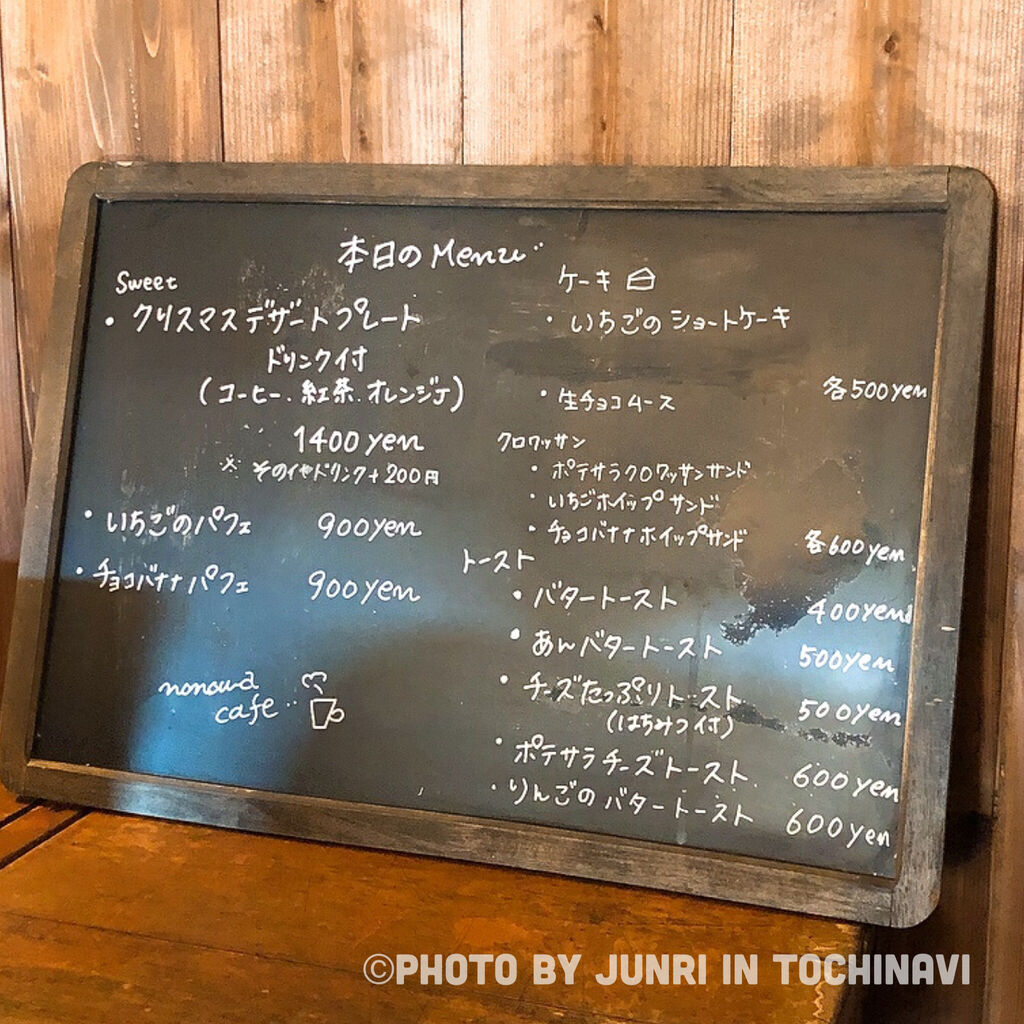 本日のMenu
Sweet
・クリスマスデザートプレート
ドリンク付
(コーヒー.紅茶.オレンジ)
1400yen
※そのイヤドリンク+200円
・いちごのパフェ 900yen
・チョコバナナパフェ 900yen
nonowa
cafe
ケーキ
・いちごのショートケーキ
・生チョコムース 各500yen
クロワッサン
・ポテサラクロワッサンサンド
・いちごホイップサンド
・チョコバナナホイップサンド 各600yen
トースト
・バタートースト 400yen
・あんバタートースト 500yen
・チーズたっぷりトースト 500yen
(はちみつ付)
・ポテサラチーズトースト 600yen
・りんごのバタートースト 600yen
©PHOTO BY JUNRI IN TOCHINAVI